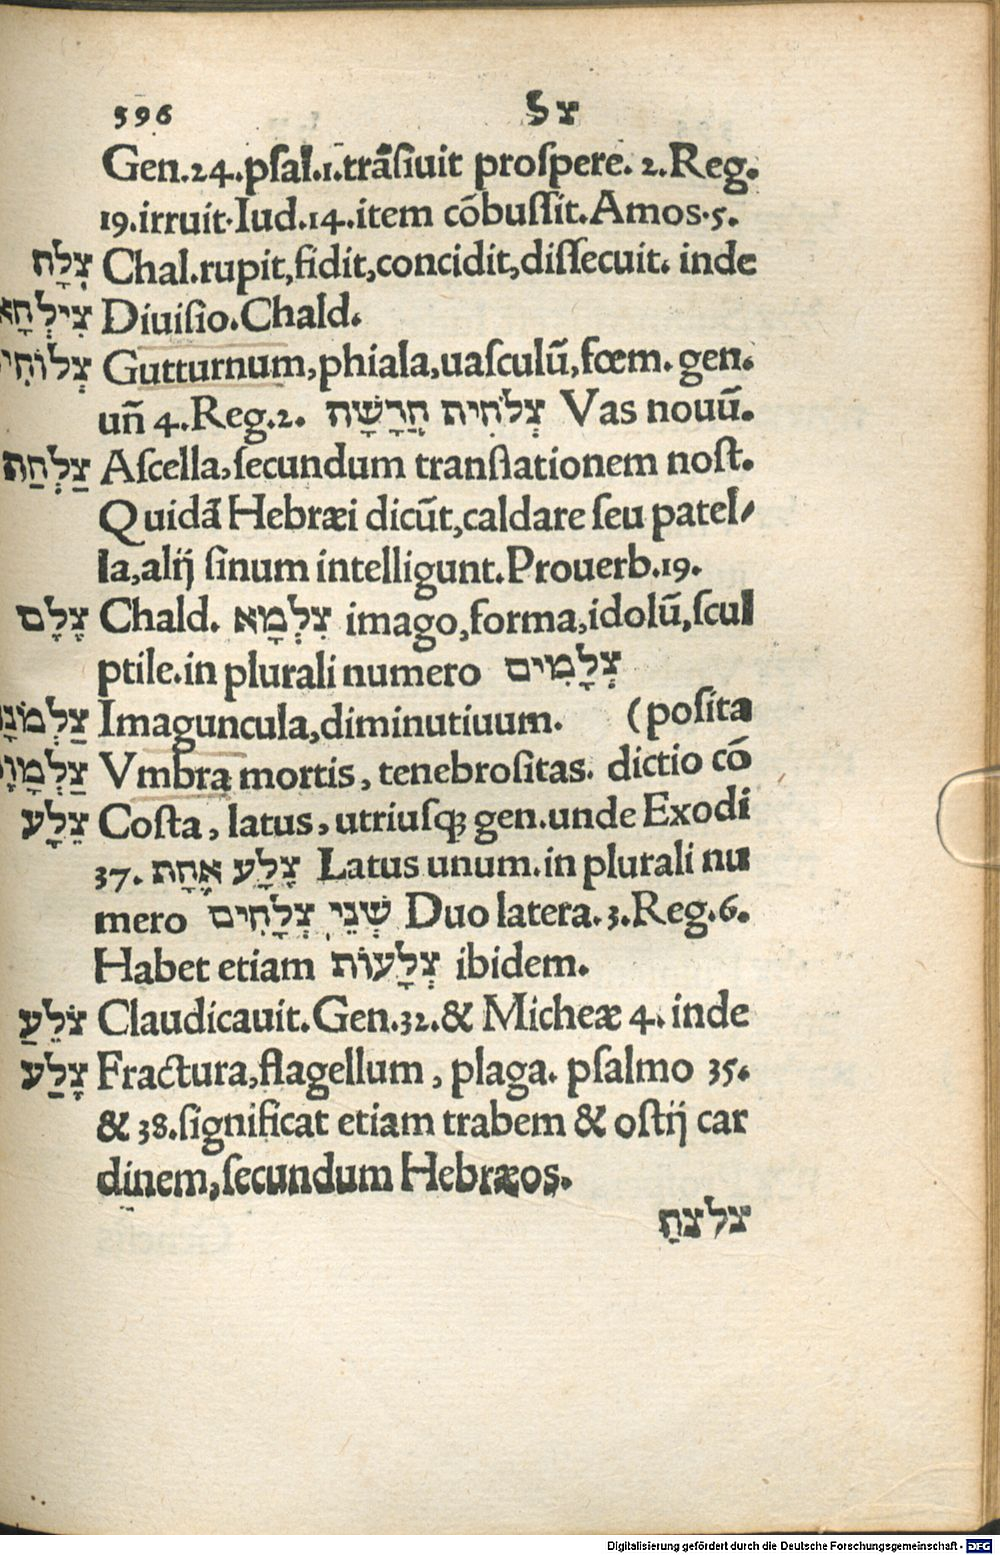 596 צל
Gen.24.psal.1.trãsiuit prospere. 2.Reg.
19.irruit.Iud.14.item cõbussit.Amos.5.
צְלָח Chal.rupit,fidit,concidit,dissecuit. inde
צִילְחָא Diuisio.Chald.
Gutturnum,phiala,uasculũ,fœm. gen.
uñ 4.Reg.2. צְלֹחִית חֲרָשָׁה Vas nouũ.
צַלְחַת Ascella,secundum translationem nost.
Quidã Hebræi dicũt,caldare seu patel/
la,alij sinum intelligunt.Prouerb.19.
צֶלָם Chald. צִלְמָא imago,forma,idolũ,scul
ptile.in plurali numero צְלָמִים
Imaguncula,diminutiuum. (posita
Vmbra mortis, tenebrositas. dictio cõ
צֵלָע Costa, latus, utriusq; gen.unde Exodi
37. צֶלָע אֶחָת Latus unum.in plurali nu
mero שְׁנֵי צְלָחִים Duo latera.3.Reg.6.
Habet etiam צְלָעוֹת ibidem.
צֹלֵעַ Claudicauit.Gen.32.& Micheæ 4. inde
צֶלַע Fractura,flagellum, plaga. psalmo 35.
& 38.significat etiam trabem & ostij car
dinem,secundum Hebræos.
צלצח
Digitalisierung gefördert durch die Deutsche Forschungsgemeinschaft - DFG